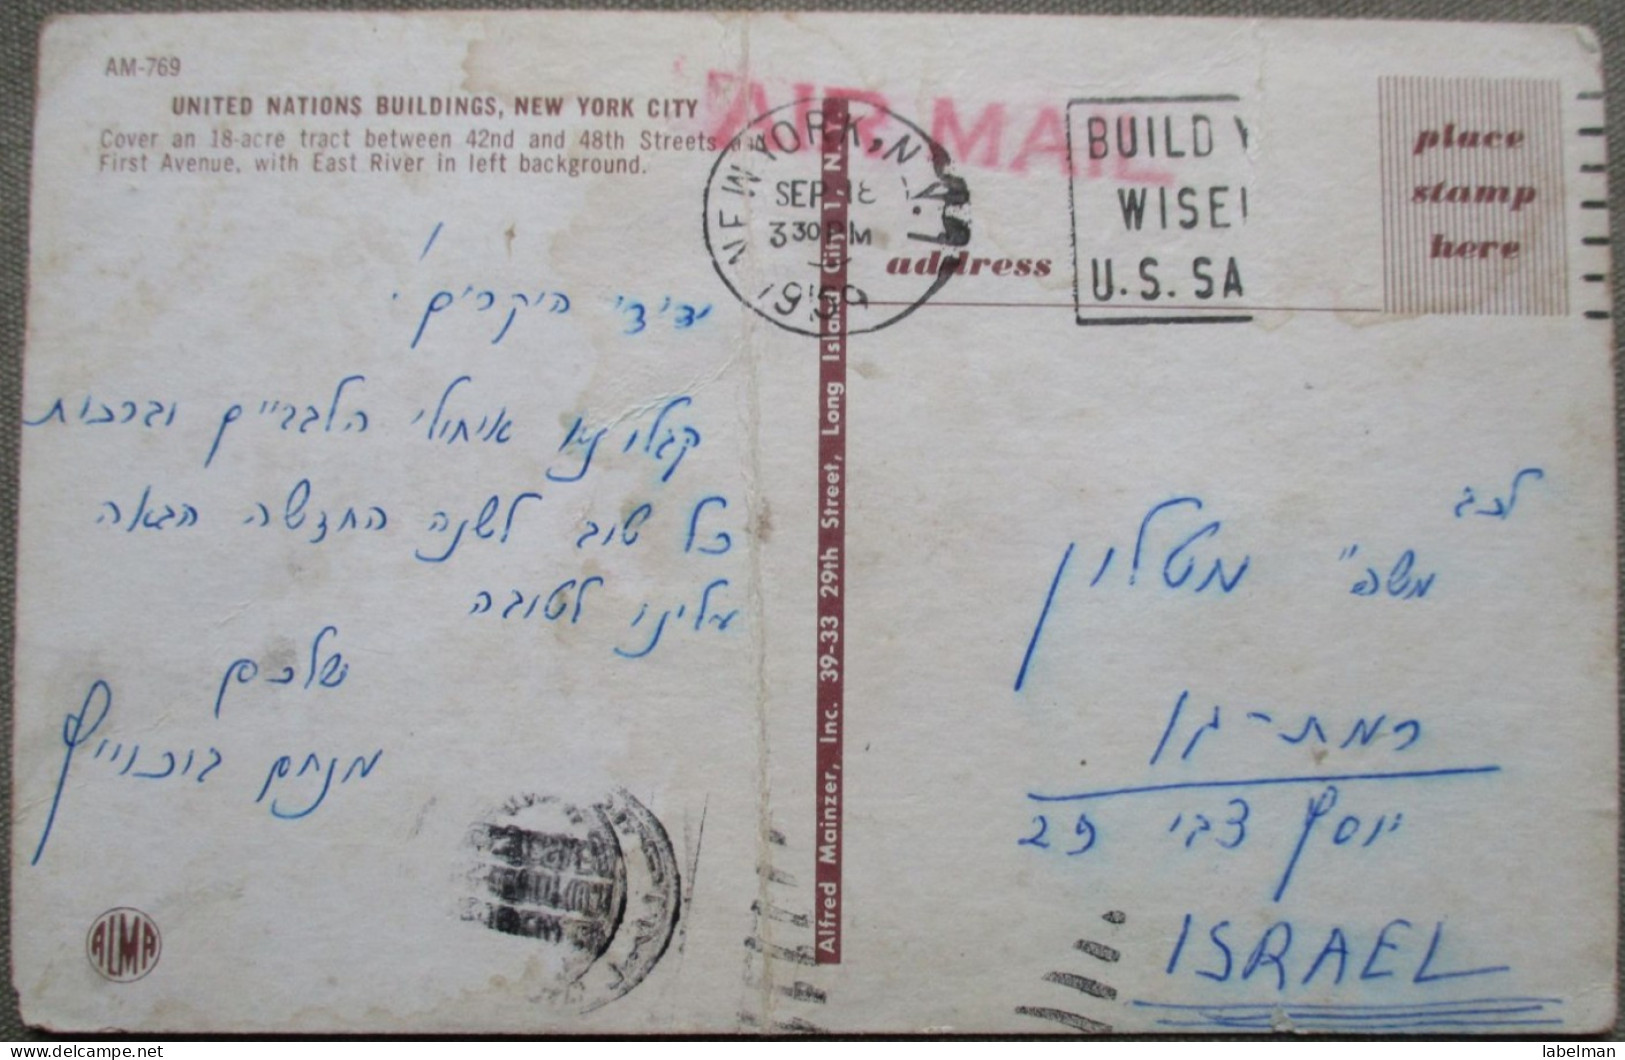 AM-769
UNITED NATIONS BUILDINGS, NEW YORK CITY
Cover an 18-acre tract between 42nd and 48th Streets
First Avenue, with East River in left background.
AIR MAIL
NEW YORK, N.Y. 1
SEP 18
3 30 PM
1959
BUILD Y
WISE
U.S. SA
place
stamp
here
address
ידידי היקרים.
קבלו נא איחולי הלבביים וברכות
כל טוב לשנה החדשה הבאה
עלינו לטובה
שלכם
מנחם
Alfred Mainzer, Inc. 39-33 29th Street, Long Island City 1, N.Y.
לכב
משה" מטלון
רמת-גן
יוסף צבי 29
ISRAEL
ALMA
labelman
delcampe.net